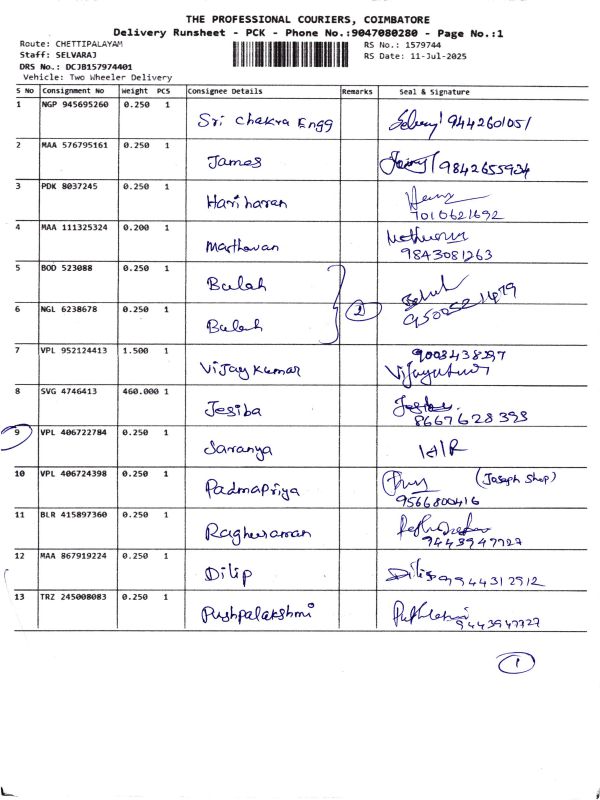 THE PROFESSIONAL COURIERS, COIMBATORE
Delivery Runsheet - PCK - Phone No.:9047080280 - Page No.:1
Route: CHETTIPALAYAM RS No.: 1579744
Staff: SELVARAJ RS Date: 11-Jul-2025
DRS No.: DCJB157974401
Vehicle: Two Wheeler Delivery
S No Consignment No Weight PCS Consignee Details Remarks Seal & Signature
1 NGP 945695260 0.250 1
Sri Chakra Engg 9442601051
2 MAA 576795161 0.250 1
James 9842655934
3 PDK 8037245 0.250 1
Hariharan
7010621692
4 MAA 111325324 0.200 1
Mathavan
9843081263
5 BOD 523088 0.250 1
Balah
2
6 NGL 6238678 0.250 1
Balah
7 VPL 952124413 1.500 1
Vijay Kumar
8 SVG 4746413 460.000 1
Jesiba
8667628393
9 VPL 406722784 0.250 1
Saranya
10 VPL 406724398 0.250 1
Padmapriya (Joseph Shop)
9566800416
11 BLR 415897360 0.250 1
Raghuraman
9443947727
12 MAA 867919224 0.250 1
Dilip Dilip 9944312912
13 TRZ 245008083 0.250 1
Pushpalakshmi
9443947727
1